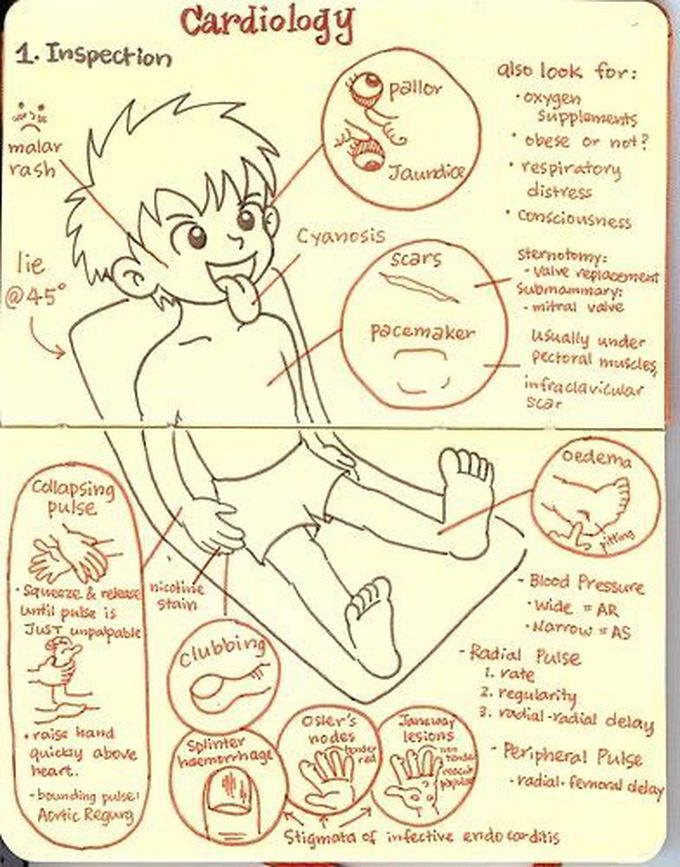 Cardiology
1. Inspection
malar
rash
lie
@45°
pallor
Jaundice
Cyanosis
also look for:
• oxygen
supplements
• obese or not?
• respiratory
distress
• consciousness
scars
pacemaker
Sternotomy:
- valve replacement
Submammary:
- mitral valve
Usually under
pectoral muscles,
infraclavicular
scar
Collapsing
pulse
• Squeeze & release
until pulse is
JUST unpalpable
• raise hand
quickly above
heart.
- bounding pulse:
Aortic Regurg
nicotine
stain
Clubbing
Splinter
haemorrhage
Osler's
nodes
tender
red
Janeway
lesions
non
tender
macular
papular
Stigmata of infective endocarditis
oedema
pitting
- Blood Pressure
• Wide = AR
• Narrow = AS
- Radial Pulse
1. rate
2. regularity
3. radial-radial delay
- Peripheral Pulse
- radial-femoral delay